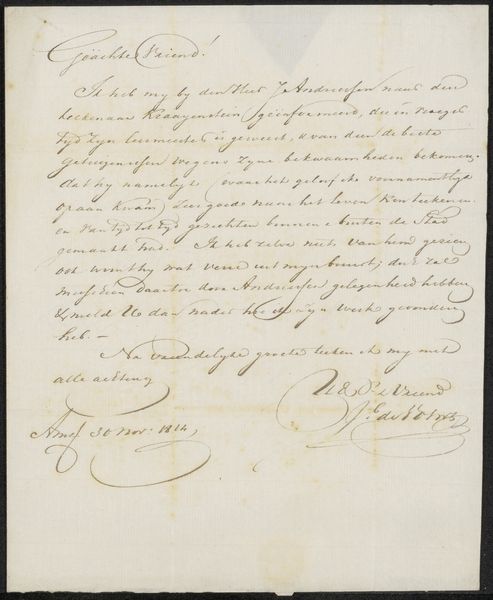 Geächte Vriend!
Ik heb my by den Heer J. Andriessen naar den
teekenaar Kraayenstein geïnformeerd, die in vroeger
tyd zyn leermeester is geweest, & van dien de beste
getuigenissen wegens zyne bekwaamheden bekomen,
dat hy namelyk (waar het geloof ik voornamentlyk
op aan kwam) zeer goed naar het leven kon teekenen
en van tyd tot tyd gezichten binnen & buiten de Stad
gemaakt had. Ik heb zelve niet van hem gezien
ook woont hy wat verre uit myn buurt; dus zal
misschien daartoe door Andriessen gelegenheid hebben
& meld U dan nader hoe ik zyn werk gevonden
heb. —
Na vriendelyke groete teeken ik my met
alle achting
UE Vriend
Js. de Vos
Amst 30 Nov. 1814